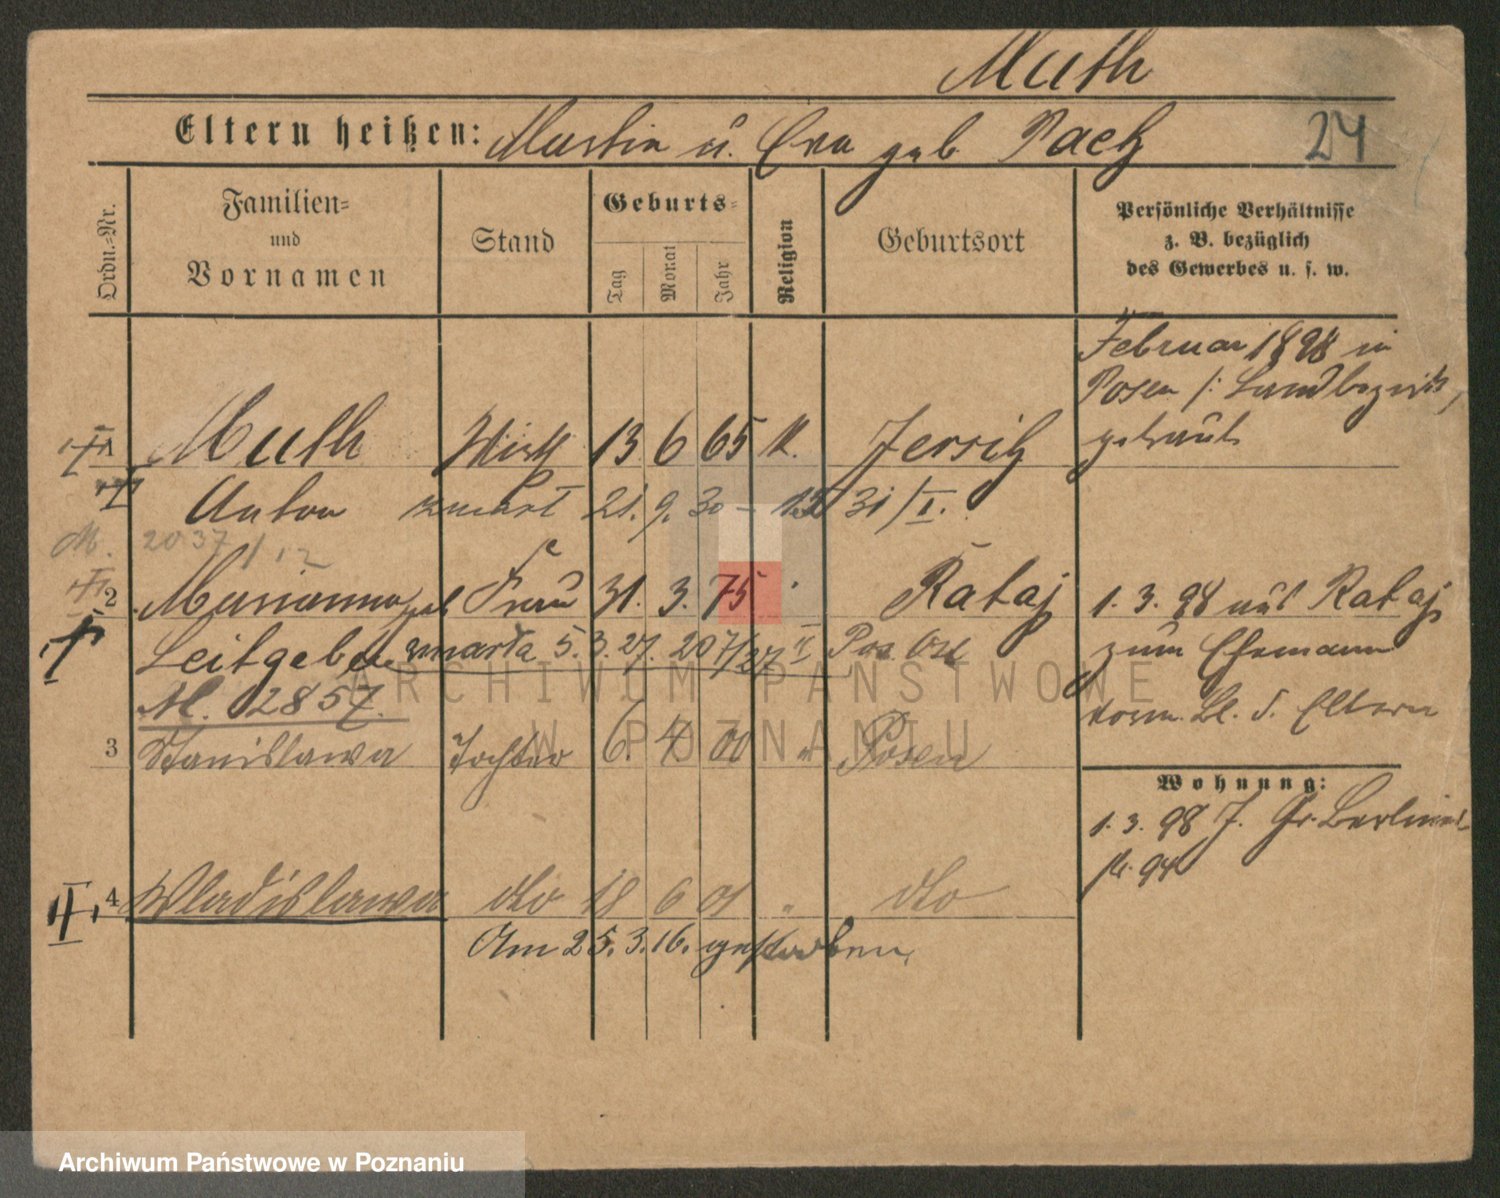 Muth
Eltern heißen: Martin u. Eva geb Pach
24
Ordn.-Nr.
Familien-
und
Vornamen
Stand
Geburts-
Tag
Monat
Jahr
Religion
Geburtsort
Persönliche Verhältnisse
z. B. bezüglich
des Gewerbes u. s. w.
Februar 1898 in
Posen /: Landbezirk,
getraut
1 Muth Wirth 13 6 65 K. Jersitz
Anton zmarł 21. 9. 30 31/I.
M. 2037/12
2 Marianna geb Frau 31. 3. 75 " Rataj
Leitgeber zmarła 5. 3. 27. 207/27 II
M. 2857.
1. 3. 98 aus Rataj
zum Ehemann
vorm. Bl. d. Eltern
3 Stanislawa Tochter 6. 4 00 " Posen
Wohnung:
1. 3. 98 J. Gr. Berliner-
str. 94
4 Wladislawa dto 18 6 01 " dto
Am 25. 3. 16. gestorben.
ARCHIWUM PAŃSTWOWE
W POZNANIU
Archiwum Państwowe w Poznaniu